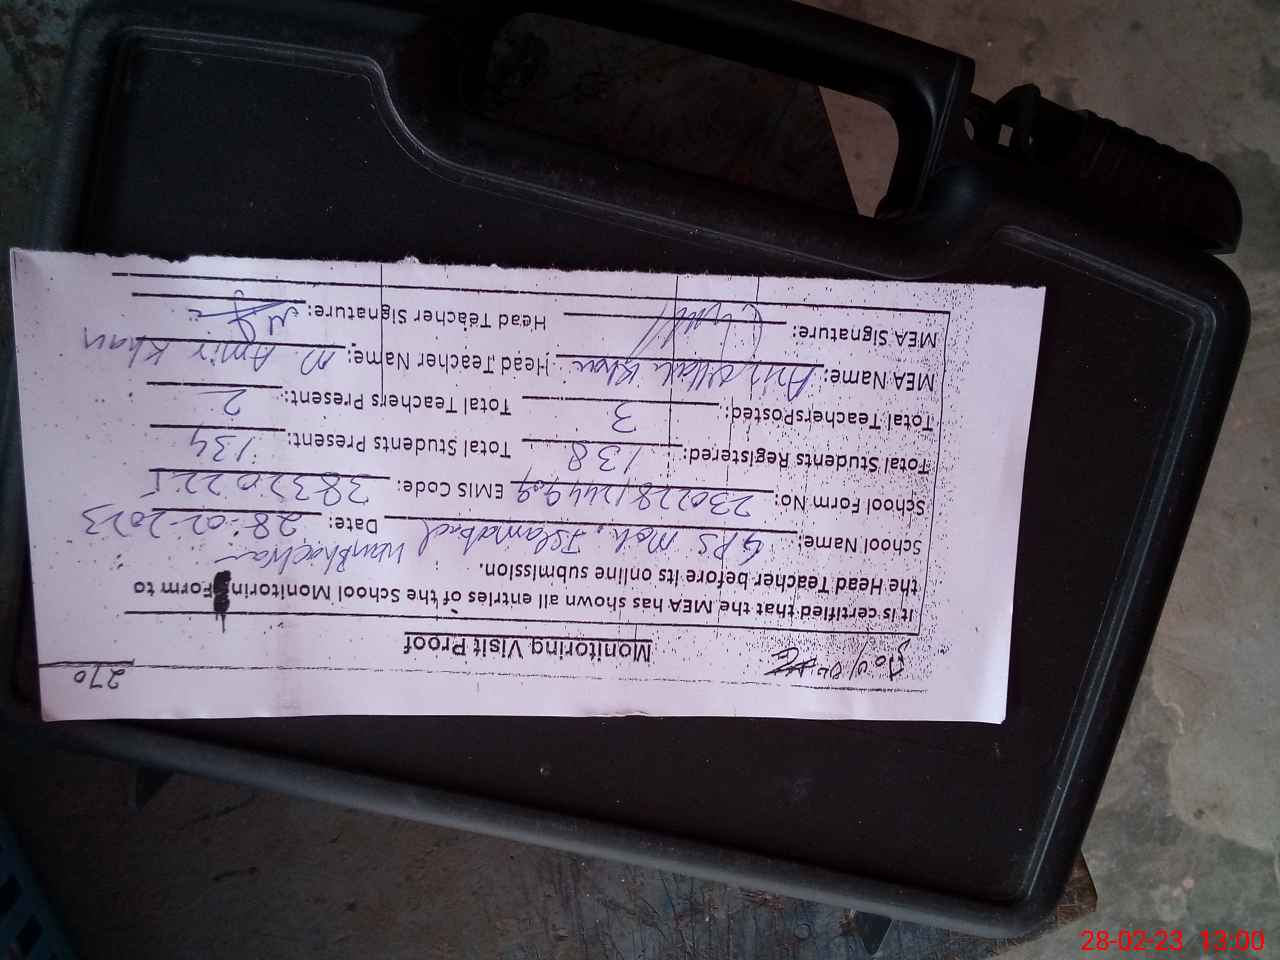 270
Monitoring Visit Proof
It is certified that the MEA has shown all entries of the School Monitoring Form to
the Head Teacher before its online submission.
School Name: GPS Moh. Islamabad Wanbhachran Date: 28-02-2023
School Form No: 2302281244909 EMIS Code: 383202
Total Students Registered: 138 Total Students Present: 134
Total TeachersPosted: 3 Total Teachers Present: 2
MEA Name: Khan Head Teacher Name: M Amir Khan
MEA Signature: Head Teacher Signature:
28-02-23 13:00